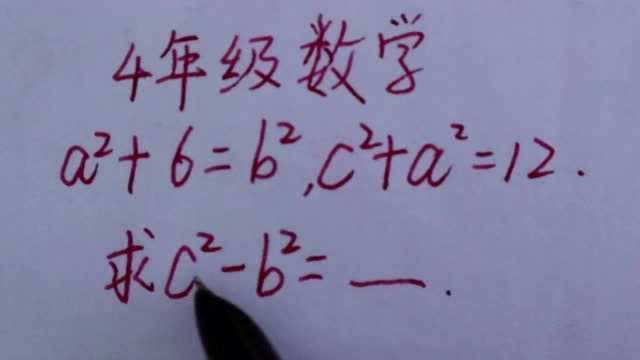 4年级数学
a²+6=b²,c²+a²=12.
求c²-b²=__.